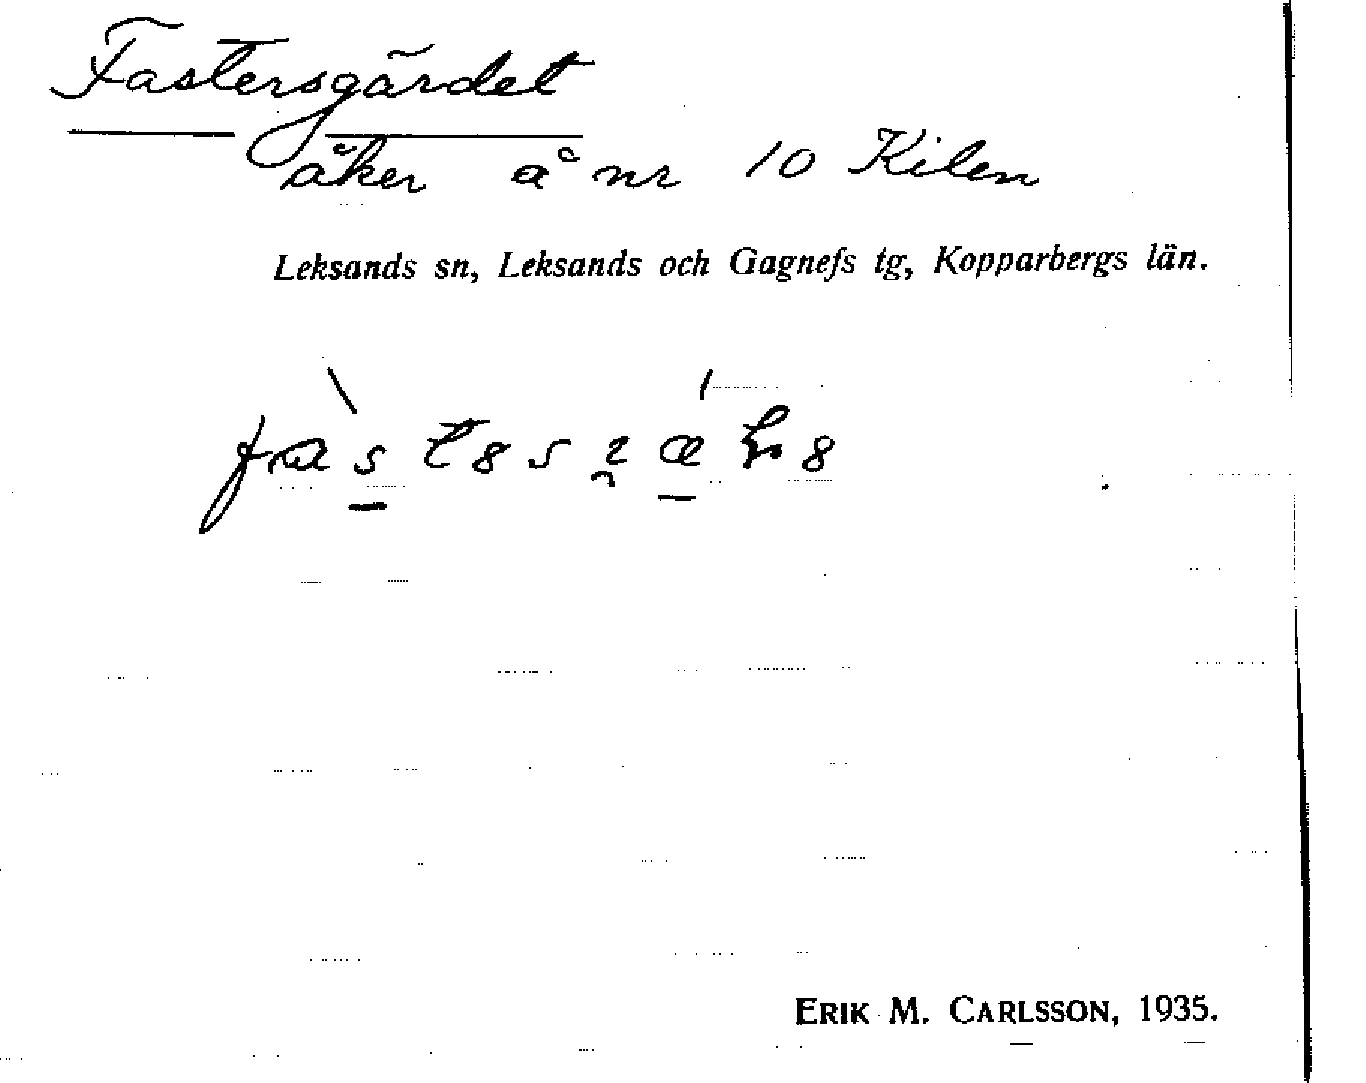 Fastersgärdet
åker å nr 10 Kilen
Leksands sn, Leksands och Gagnefs tg, Kopparbergs län.
ERIK M. CARLSSON, 1935.